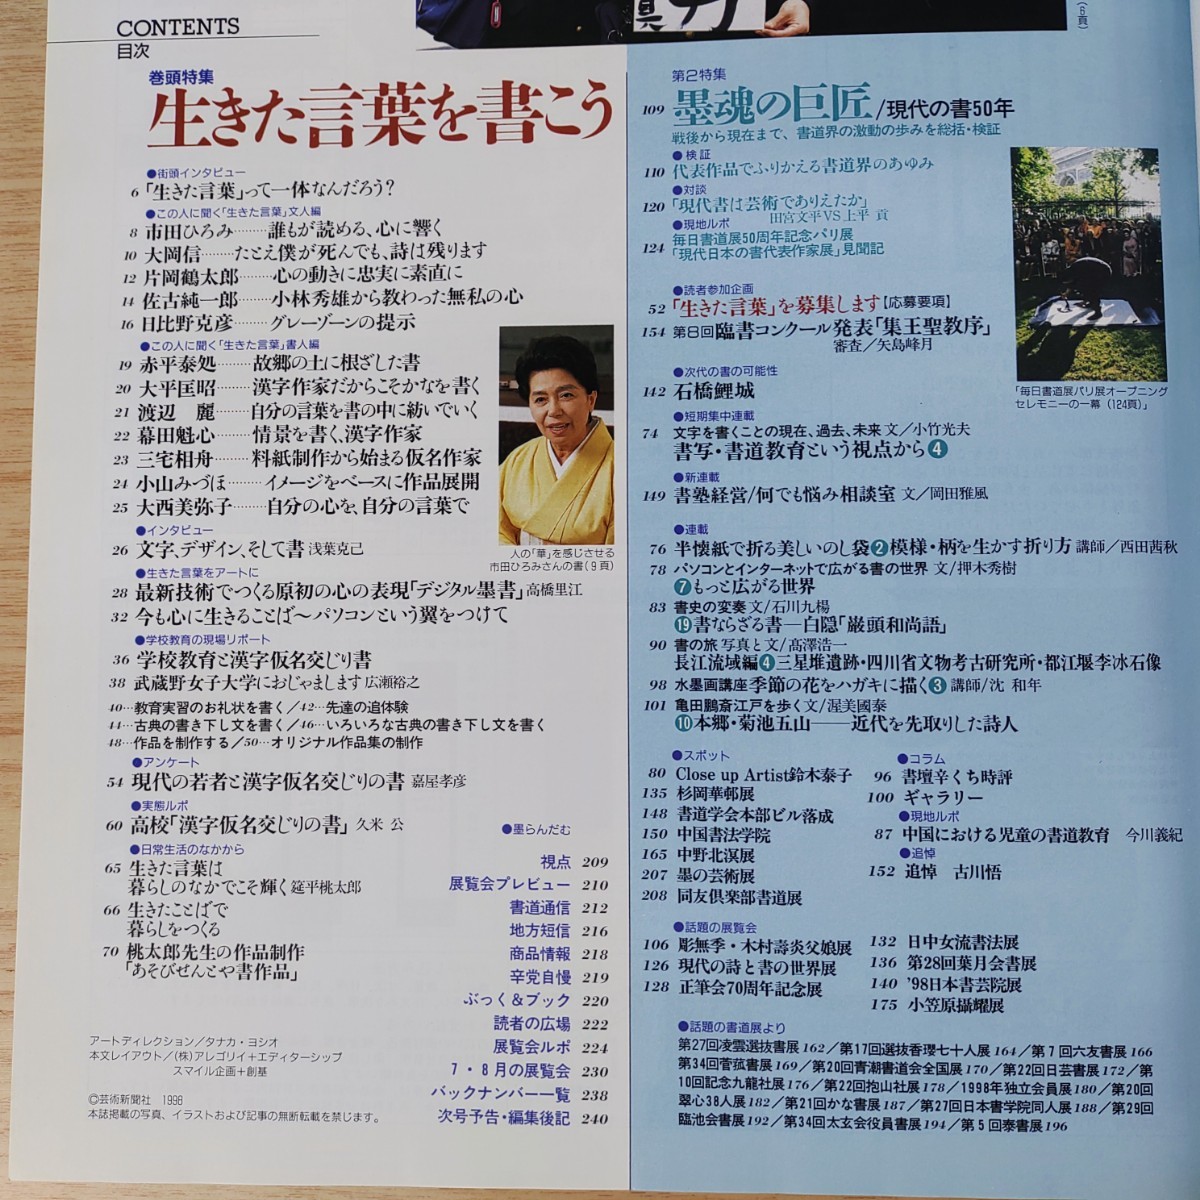 CONTENTS
目次
(6頁)
巻頭特集
生きた言葉を書こう
●街頭インタビュー
6 「生きた言葉」って一体なんだろう?
●この人に聞く「生きた言葉」文人編
8 市田ひろみ………誰もが読める、心に響く
10 大岡信……たとえ僕が死んでも、詩は残ります
12 片岡鶴太郎………心の動きに忠実に素直に
14 佐古純一郎………小林秀雄から教わった無私の心
16 日比野克彦………グレーゾーンの提示
●この人に聞く「生きた言葉」書人編
19 赤平泰処………故郷の土に根ざした書
20 大平匡昭………漢字作家だからこそかなを書く
21 渡辺 麗………自分の言葉を書の中に紡いでいく
22 幕田魁心………情景を書く、漢字作家
23 三宅相舟………料紙制作から始まる仮名作家
24 小山みづほ………イメージをベースに作品展開
25 大西美弥子………自分の心を、自分の言葉で
人の「華」を感じさせる
市田ひろみさんの書(9頁)
●インタビュー
26 文字、デザイン、そして書 浅葉克己
●生きた言葉をアートに
28 最新技術でつくる原初の心の表現「デジタル墨書」高橋里江
32 今も心に生きることば〜パソコンという翼をつけて
●学校教育の現場リポート
36 学校教育と漢字仮名交じり書
38 武蔵野女子大学におじゃまします 広瀬裕之
40…教育実習のお礼状を書く/42…先達の追体験
44…古典の書き下し文を書く/46…いろいろな古典の書き下し文を書く
48…作品を制作する/50…オリジナル作品集の制作
●アンケート
54 現代の若者と漢字仮名交じりの書 嘉屋孝彦
●実態ルポ
60 高校「漢字仮名交じりの書」久米 公
●日常生活のなかから
65 生きた言葉は
暮らしのなかでこそ輝く 筵平桃太郎
66 生きたことばで
暮らしをつくる
70 桃太郎先生の作品制作
「あそびせんとや書作品」
●墨らんだむ
視点 209
展覧会プレビュー 210
書道通信 212
地方短信 216
商品情報 218
辛党自慢 219
ぶっく&ブック 220
読者の広場 222
展覧会ルポ 224
7・8月の展覧会 230
バックナンバー一覧 238
次号予告・編集後記 240
アートディレクション/タナカ・ヨシオ
本文レイアウト/(株)アレゴリイ+エディターシップ
スマイル企画+創基
©芸術新聞社 1998
本誌掲載の写真、イラストおよび記事の無断転載を禁じます。
第2特集
109 墨魂の巨匠/現代の書50年
戦後から現在まで、書道界の激動の歩みを総括・検証
●検証
110 代表作品でふりかえる書道界のあゆみ
●対談
120 「現代書は芸術でありえたか」
田宮文平VS上平 貢
●現地ルポ
124 毎日書道展50周年記念パリ展
「現代日本の書代表作家展」見聞記
●読者参加企画
52 「生きた言葉」を募集します【応募要項】
154 第8回臨書コンクール発表「集王聖教序」
審査/矢島峰月
「毎日書道展パリ展オープニング
セレモニーの一幕(124頁)」
●次代の書の可能性
142 石橋鯉城
●短期集中連載
74 文字を書くことの現在、過去、未来 文/小竹光夫
書写・書道教育という視点から④
●新連載
149 書塾経営/何でも悩み相談室 文/岡田雅風
●連載
76 半懐紙で折る美しいのし袋②模様・柄を生かす折り方 講師/西田茜秋
78 パソコンとインターネットで広がる書の世界 文/押木秀樹
⑦もっと広がる世界
83 書史の変奏 文/石川九楊
⑲書ならざる書―白隠「巌頭和尚語」
90 書の旅 写真と文/髙澤浩一
長江流域編④三星堆遺跡・四川省文物考古研究所・都江堰李冰石像
98 水墨画講座 季節の花をハガキに描く③ 講師/沈 和年
101 亀田鵬斎江戸を歩く 文/渥美國泰
⑩本郷・菊池五山――近代を先取りした詩人
●スポット
80 Close up Artist鈴木泰子
135 杉岡華邨展
148 書道学会本部ビル落成
150 中国書法学院
165 中野北溟展
207 墨の芸術展
208 同友倶楽部書道展
●コラム
96 書壇辛くち時評
100 ギャラリー
●現地ルポ
87 中国における児童の書道教育 今川義紀
●追悼
152 追悼 古川悟
●話題の展覧会
106 彫無季・木村壽炎父娘展
126 現代の詩と書の世界展
128 正筆会70周年記念展
132 日中女流書法展
136 第28回葉月会書展
140 '98日本書芸院展
175 小笠原攝耀展
●話題の書道展より
第27回凌雲選抜書展162/第17回選抜香瓔七十人展164/第7回六友書展166
第34回菅菰書展169/第20回青潮書道会全国展170/第22回日芸書展172/第
10回記念九龍社展176/第22回抱山社展178/1998年独立会員展180/第20回
翠心38人展182/第21回かな書展187/第27回日本書学院同人展188/第29回
臨池会書展192/第34回太玄会役員書展194/第5回泰書展196